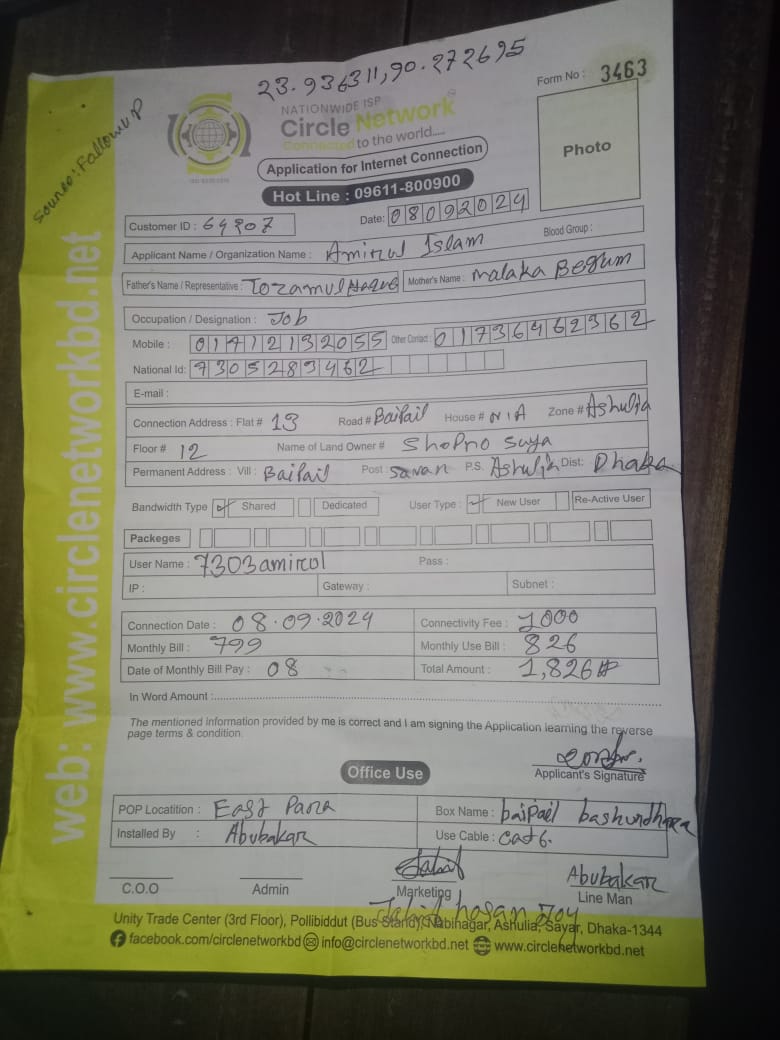 23.936311,90.272695
Source: Follow UP
NATIONWIDE ISP
Circle Network
Connected to the world.....
Form No : 3463
Photo
Application for Internet Connection
Hot Line : 09611-800900
Customer ID : 64207 Date: 08092024
Applicant Name / Organization Name : Amirul Islam Blood Group :
Father's Name / Representative : Tozamul Haque Mother's Name : Malaka Begum
Occupation / Designation : Job
Mobile : 01412132055 Other Contact : 01736462362
National Id: 7305289462
E-mail :
Connection Address : Flat# 13 Road # Baipail House # N/A Zone # Ashulia
Floor # 12 Name of Land Owner # Shopno Suya
Permanent Address : Vill : Baipail Post : Savar P.S. Ashulia Dist: Dhaka
Bandwidth Type Shared Dedicated User Type : New User Re-Active User
Packeges
User Name : 7303amirol Pass :
IP : Gateway : Subnet :
Connection Date : 08.09.2024 Connectivity Fee : 1000
Monthly Bill : 799 Monthly Use Bill : 826
Date of Monthly Bill Pay : 08 Total Amount : 1,826
In Word Amount :
The mentioned information provided by me is correct and I am signing the Application learning the reverse
page terms & condition.
Applicant's Signature
Office Use
POP Locatition : East Para Box Name : baipail bashundhara
Installed By : Abubakar Use Cable : cat6.
Abubakar
C.O.O Admin Marketing Line Man
hasan Joy
Unity Trade Center (3rd Floor), Pollibiddut (Bus Stand), Nabinagar, Ashulia, Savar, Dhaka-1344
facebook.com/circlenetworkbd info@circlenetworkbd.net www.circlenetworkbd.net
web: www.circlenetworkbd.net